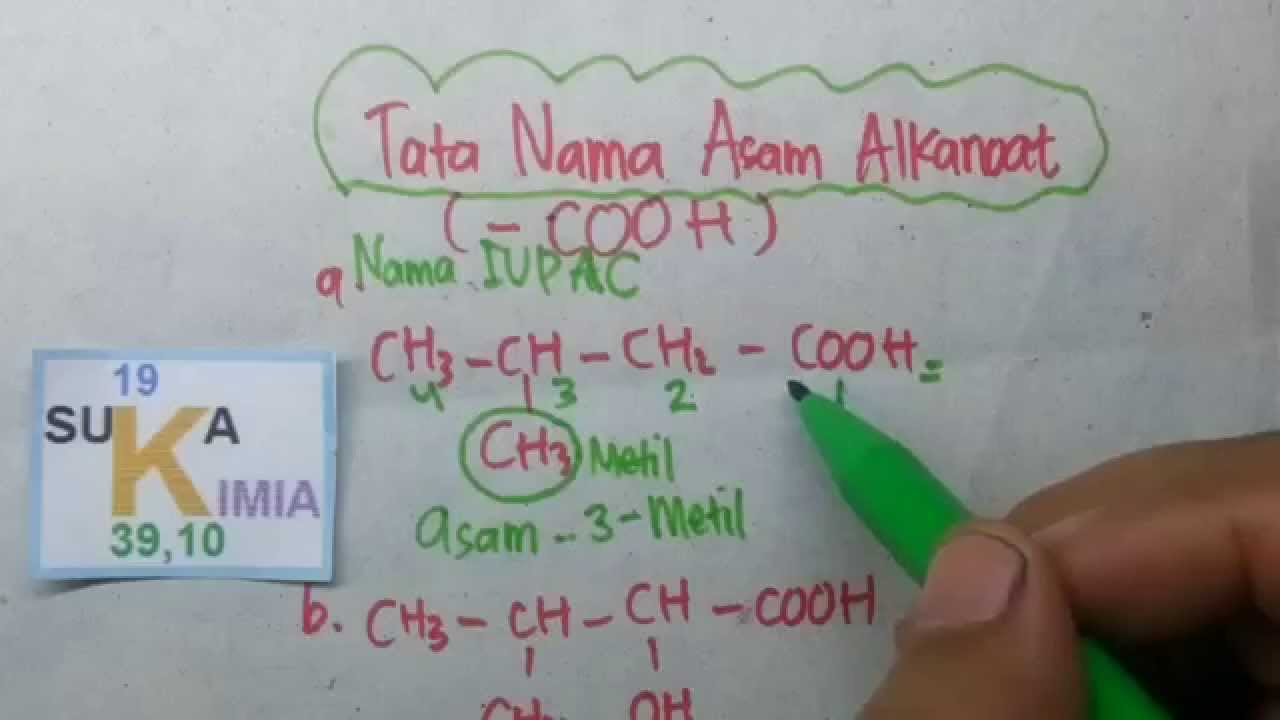 Tata Nama Asam Alkanoat
(-COOH)
a Nama IUPAC
CH3-CH-CH2-COOH=
4 3 2 1
CH3 Metil
asam -- 3-Metil
19
SUKA
KIMIA
39,10
b. CH3-CH-CH-COOH
OH